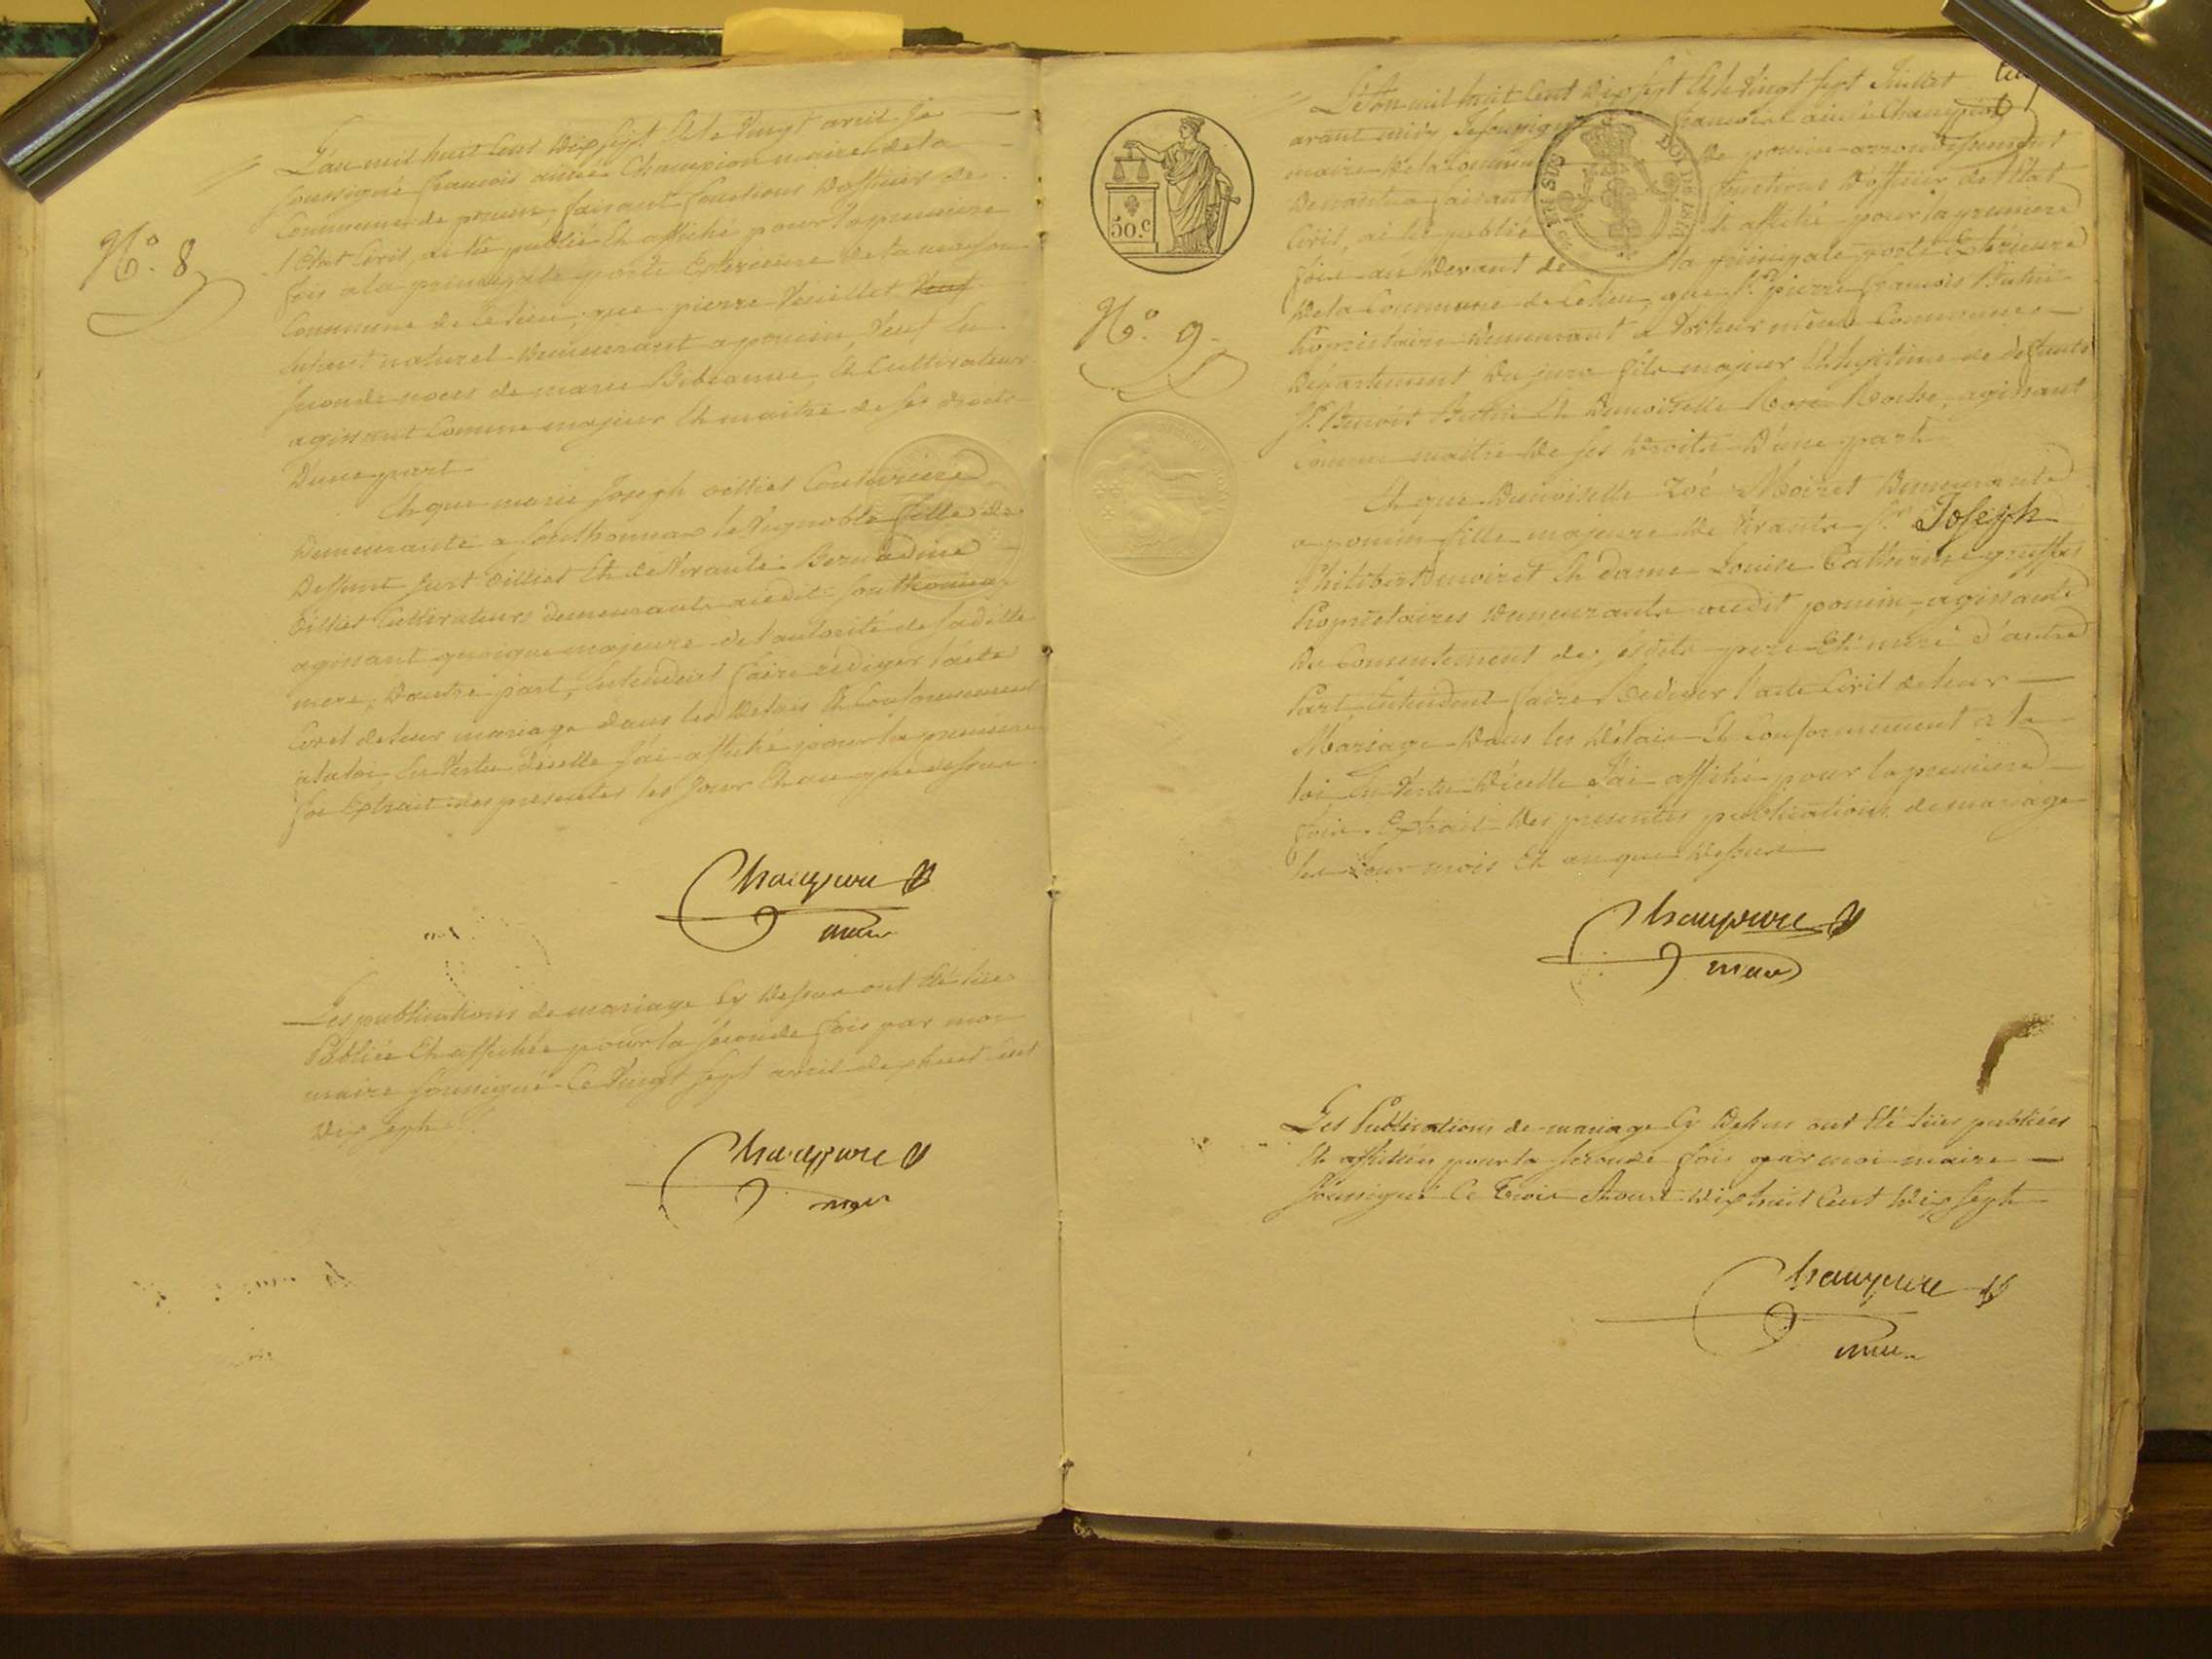 N.o 8
L'an mil huit Cent Dix Sept Et le Vingt avril Je
Soussigné françois aimé Champion maire de la
Commune de ponim, faisant fonctions D'officier de
l'Etat Civil, ai lu publié Et affiché pour la premiere
fois a la principale porte Exterieure de la maison
Commune de Ce lieu, que pierre Veuillet
Enfant naturel Demeurant a Veuf En
Seconde noces de marie Et Cultivateur
agissant Comme majeur Et maitre de ses droits
D'une part
Et que marie Joseph oilliet Couturiere
Demeurante a le Vignoble fille de
Deffunt Just oilliet Et de Vivante Bernadine
oilliet Cultivateurs Demeurante audit
agissant quoique majeure de l'autorité de sa ditte
mere, D'autre part, Entendent faire rédiger l'acte
Civil de leur mariage Dans les Delais Et Conformement
a la loi, En Vertu D'icelle J'ai affiché pour la premiere
fois Extrait des presentes les Jour Et an que dessus
Champion
maire
Les publications de mariage Cy Dessus ont Eté lües
Publiées Et affichées pour la seconde fois par moi
maire Soussigné Ce Vingt Sept avril dix huit Cent
Dix Sept
Champion
maire
50.c
N.o 9.
L'an mil huit Cent Dix Sept Et le Vingt Sept Juillet
avant midy Je Soussigné françois aimé Champion
maire de la Commune De arrondissement
faisant fonctions D'officier de l'Etat
Civil, ai lu publié Et affiché pour la premiere
fois au Devant de la principale porte Exterieure
De la Commune de Ce lieu, que S.r pierre françois
Propriétaire Demeurant a même Commune
Département Du Jura fils majeur Et légitime de défunts
S.r Benoit Et Demoiselle Rose agissant
Comme maitre De ses Droits D'une part
Et que Demoiselle Zoé Moiret Demeurante
a fille majeure de Vivants S.r Joseph
Philibert moiret Et dame Louise Catherine
Propriétaires Demeurants audit agissante
Du Consentement de ses dits pere Et mere D'autre
Part Entendent faire Rédiger l'acte Civil de leur
Mariage Dans les Délais Et Conformement a la
loi, En Vertu D'icelle J'ai affiché pour la premiere
fois Extrait Des presentes publications de mariage
les Jour mois Et an que Dessus
Champion
maire
Les Publications de mariage Cy Dessus ont Eté lües publiées
Et affichées pour la seconde fois par moi maire
Soussigné Ce Trois Aoust Dix huit Cent Dix Sept
Champion
maire